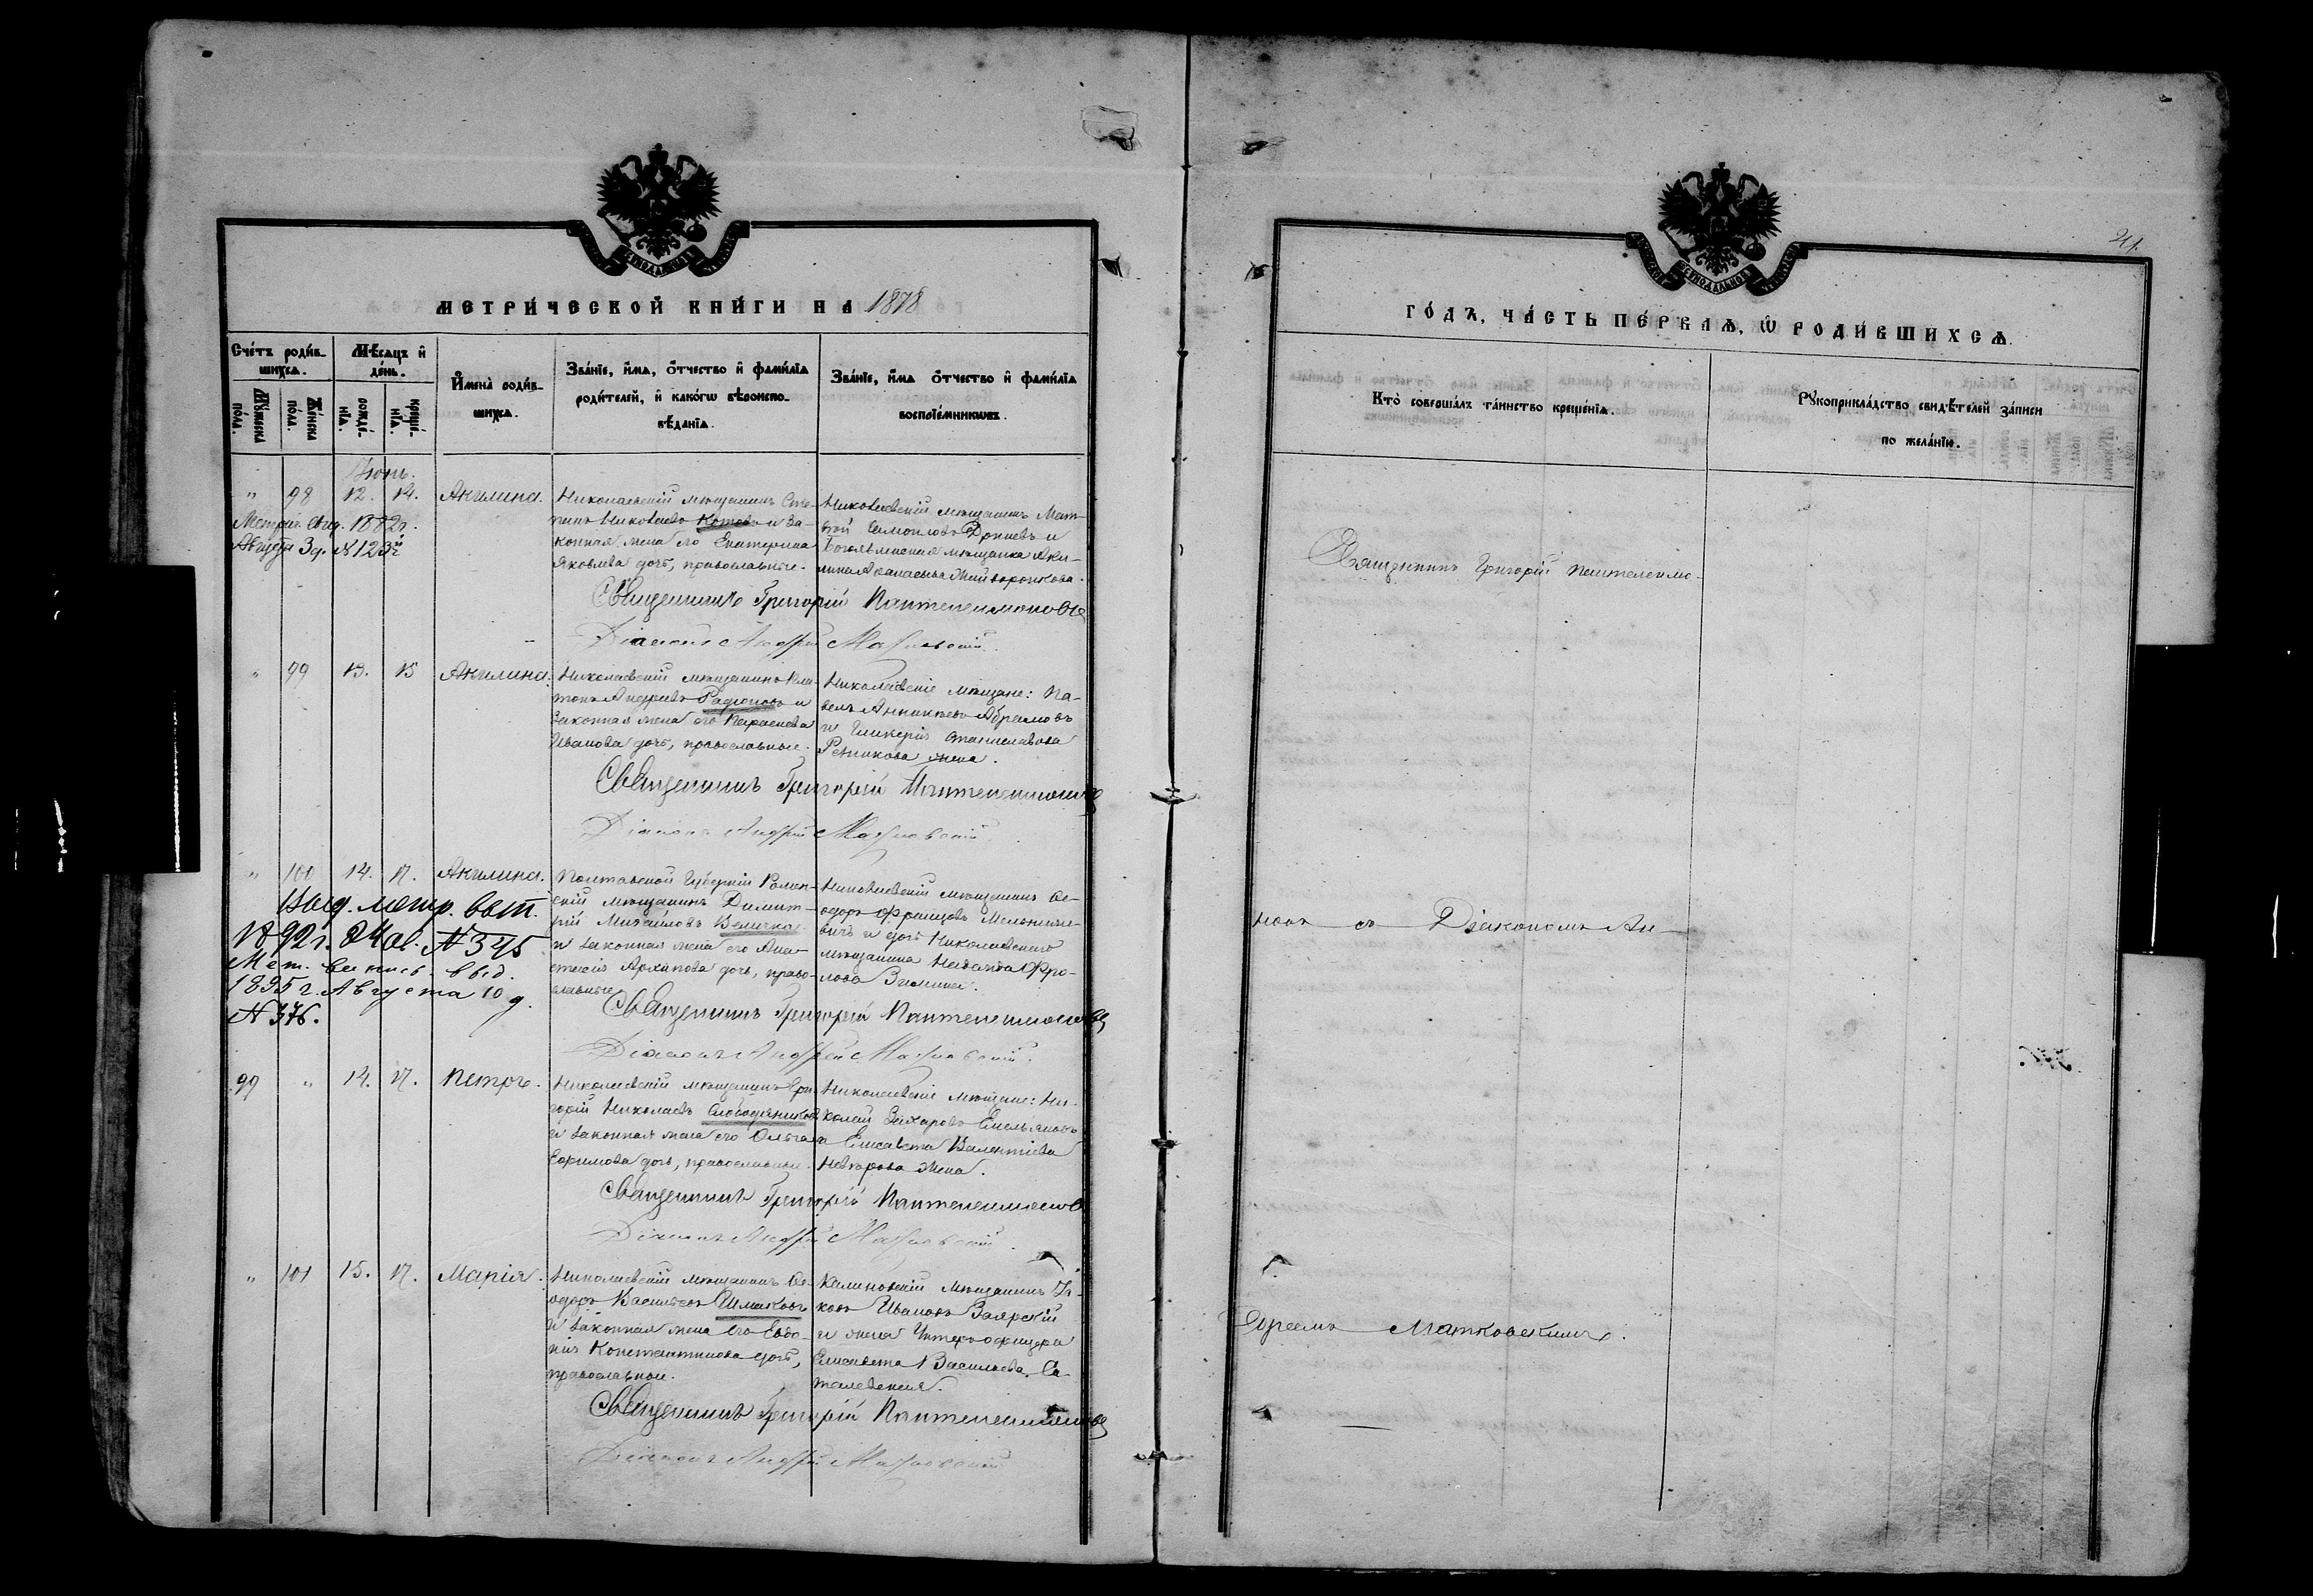 МЕТРИ́ЧЕСКОЙ КНИ́ГИ НА 1878
Сче́тъ роди́в-
шихсѧ.
Мѣ́сяцъ и҆
де́нь.
Мꙋ́жеска
по́ла.
Же́нска
по́ла.
рожде́-
нїѧ.
креще́-
нїѧ.
И҆мена̀ роди́в-
шихсѧ.
Зва́нїе, и҆́мѧ, о҆́тчество и҆ фами́лїѧ
роди́телей, и҆ како́гѡ вѣроиспо-
вѣ́данїѧ.
Зва́нїе, и҆́мѧ о҆́тчество и҆ фами́лїѧ
воспрїе́мникѡвъ.
Іюнь.
" 98 12. 14. Акилина.
Николаевскій мѣщанинъ Сте-
панъ Николаевъ Котовъ и за-
конная жена его Екатерина
Яковлева дочь, православные.
Николаевскій мѣщанинъ Мат-
вѣй Самойловъ и
мѣщанка Аки-
лина
Метрич. выд. 1882 г.
Августа 3 д. № 123
Священникъ Григорій Пантелеимоновъ
Діаконъ Андрей Матковскій.
" 99 13. 15 Акилина.
Николаевскій мѣщанинъ Пла-
тонъ Андреевъ Радионовъ и
законная жена его Параскева
Иванова дочь, православные.
Николаевскіе мѣщане: Па-
велъ Аникіевъ Абрамовъ
и Гликерія Станиславова
Резникова жена.
Священникъ Григорій Пантелеимоновъ
Діаконъ Андрей Матковскій
" 100 14. 17. Акилина.
Полтавской Губерніи Ромен-
скій мѣщанинъ Димит-
рій Михайловъ Величко
и законная жена его Ана-
стасія Архипова дочь, право-
славные
Николаевскій мѣщанинъ Ѳе-
одоръ Францовъ Мельники-
вичъ и дочь Николаевскаго
мѣщанина Наталія Фро-
лова Зимина.
Выд. метр. вып.
1892 г. 8 № 345
Мет. выпись выд.
1895 г. Августа 10 д.
№ 376.
Священникъ Григорій Пантелеимоновъ
Діаконъ Андрей Матковскій.
99 " 14. 17. Петръ.
Николаевскій мѣщанинъ Гри-
горій Николаевъ Слободяниковъ
и законная жена его Ольга
Ефимова дочь, православные.
Николаевскіе мѣщане: Ни-
колай Захаровъ Емельяновъ
и Елисавета Валентіева
жена.
Священникъ Григорій Пантелеимоновъ
Діаконъ Андрей Матковскій.
" 101 15. 17. Марія.
Николаевскій мѣщанинъ Ѳе-
одоръ Васильевъ Шмаковъ
и законная жена его Евдо-
кія Константинова дочь,
православные.
мѣщанинъ Іа-
ковъ Ивановъ Заярскій
и жена Унтеръ-офицера
Елисавета Васильева Са-
Священникъ Григорій Пантелеимоновъ
Діаконъ Андрей Матковскій
ГО́ДЪ, ЧА́СТЬ ПЕ́РВАѦ, Ѡ҆ РОДИ́ВШИХСѦ.
Кто̀ соверша́лъ та́инство креще́нїѧ.
Рꙋкоприкла́дство свидѣ́телей за́писи
по жела́нїю.
Священникъ Григорій Пантелеимо-
новъ съ Діакономъ Ан-
дреемъ Матковскимъ.